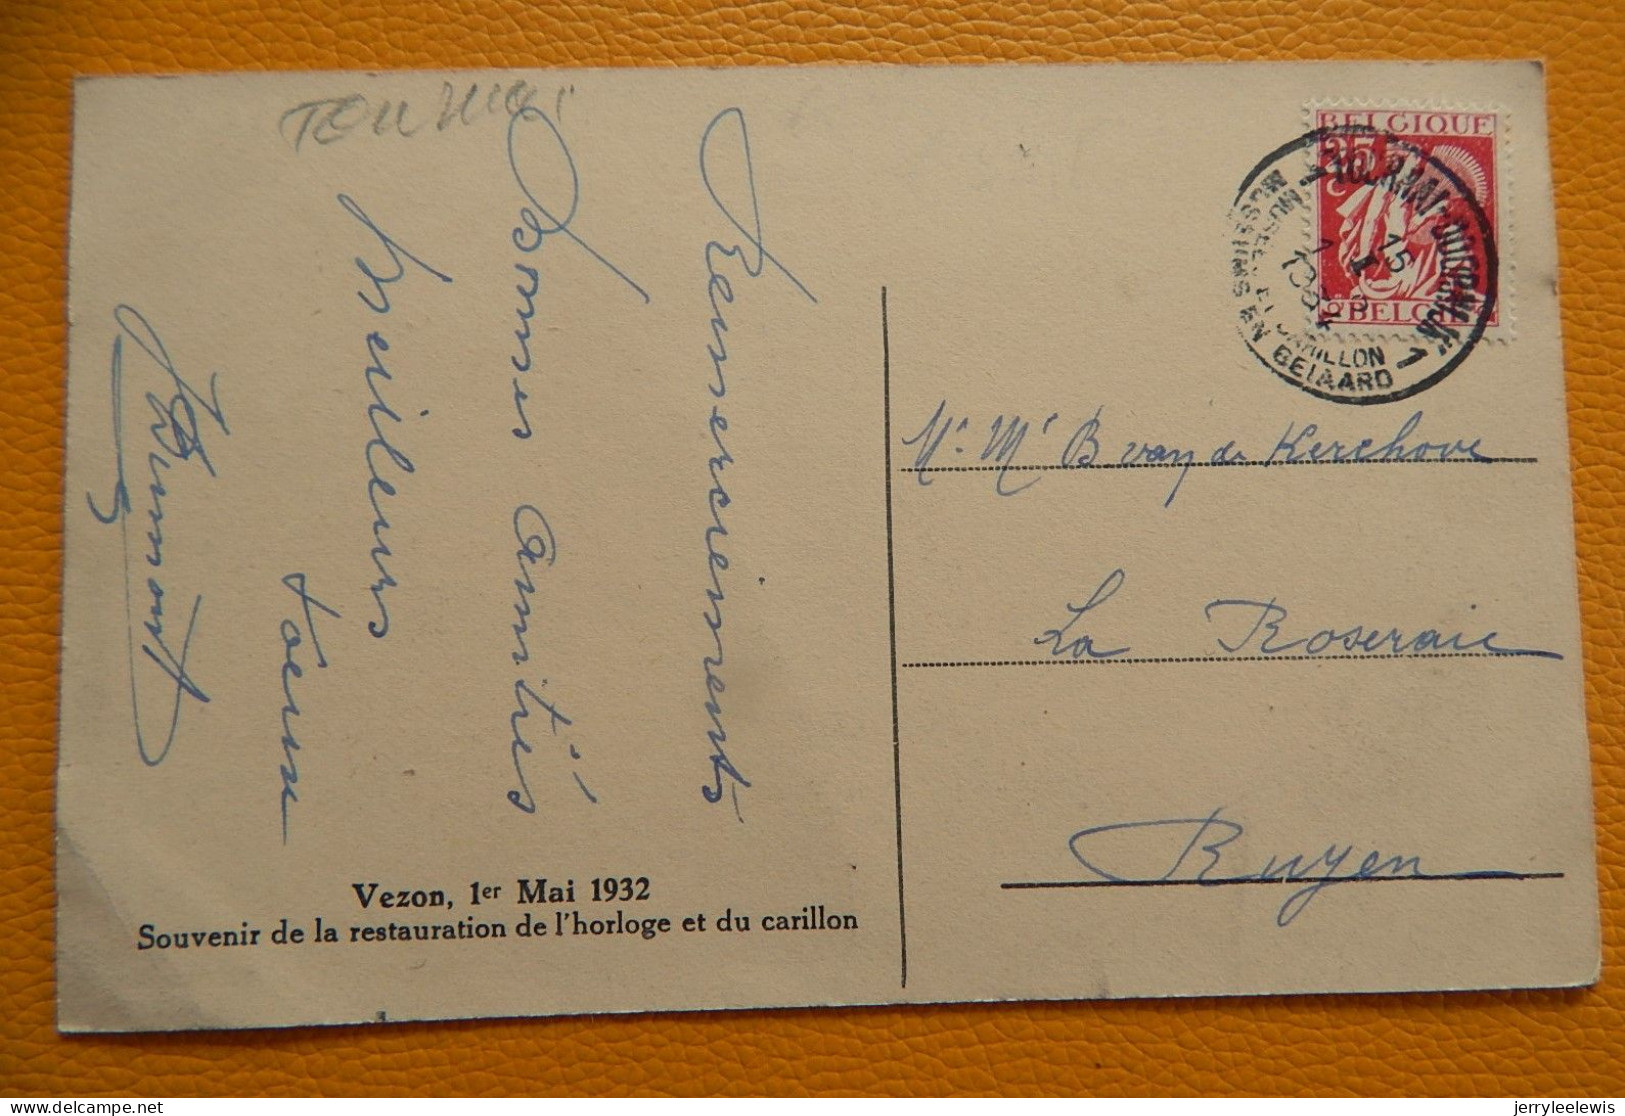 Tournai
Remerciements
Bonnes Amitiés
Meilleurs
voeux
Dumont
Vezon, 1er Mai 1932
Souvenir de la restauration de l'horloge et du carillon
BELGIQUE
35 c
BELGIË
TOURNAI - DOORNIK
1 15 II 3 1934 1
MUSÉES ET CARILLON
MUSSEUMS EN BEIAARD
Mr. Mr B van de Kerchove
La Roseraie
Ruyen
jerryleelewis